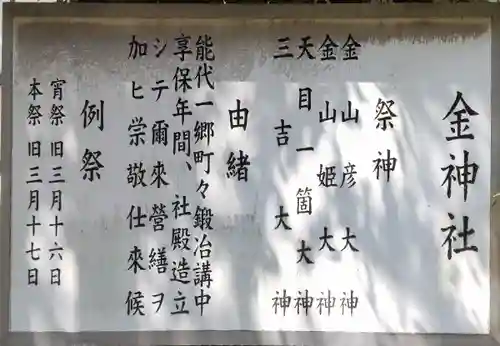 金神社
祭神
金山彦大神
金山姫大神
天目一箇大神
三吉大神
由緒
能代一郷町々鍛冶講中
享保年間、社殿造立
シテ爾來營繕ヲ
加ヒ崇敬仕來候
例祭
宵祭 旧三月十六日
本祭 旧三月十七日